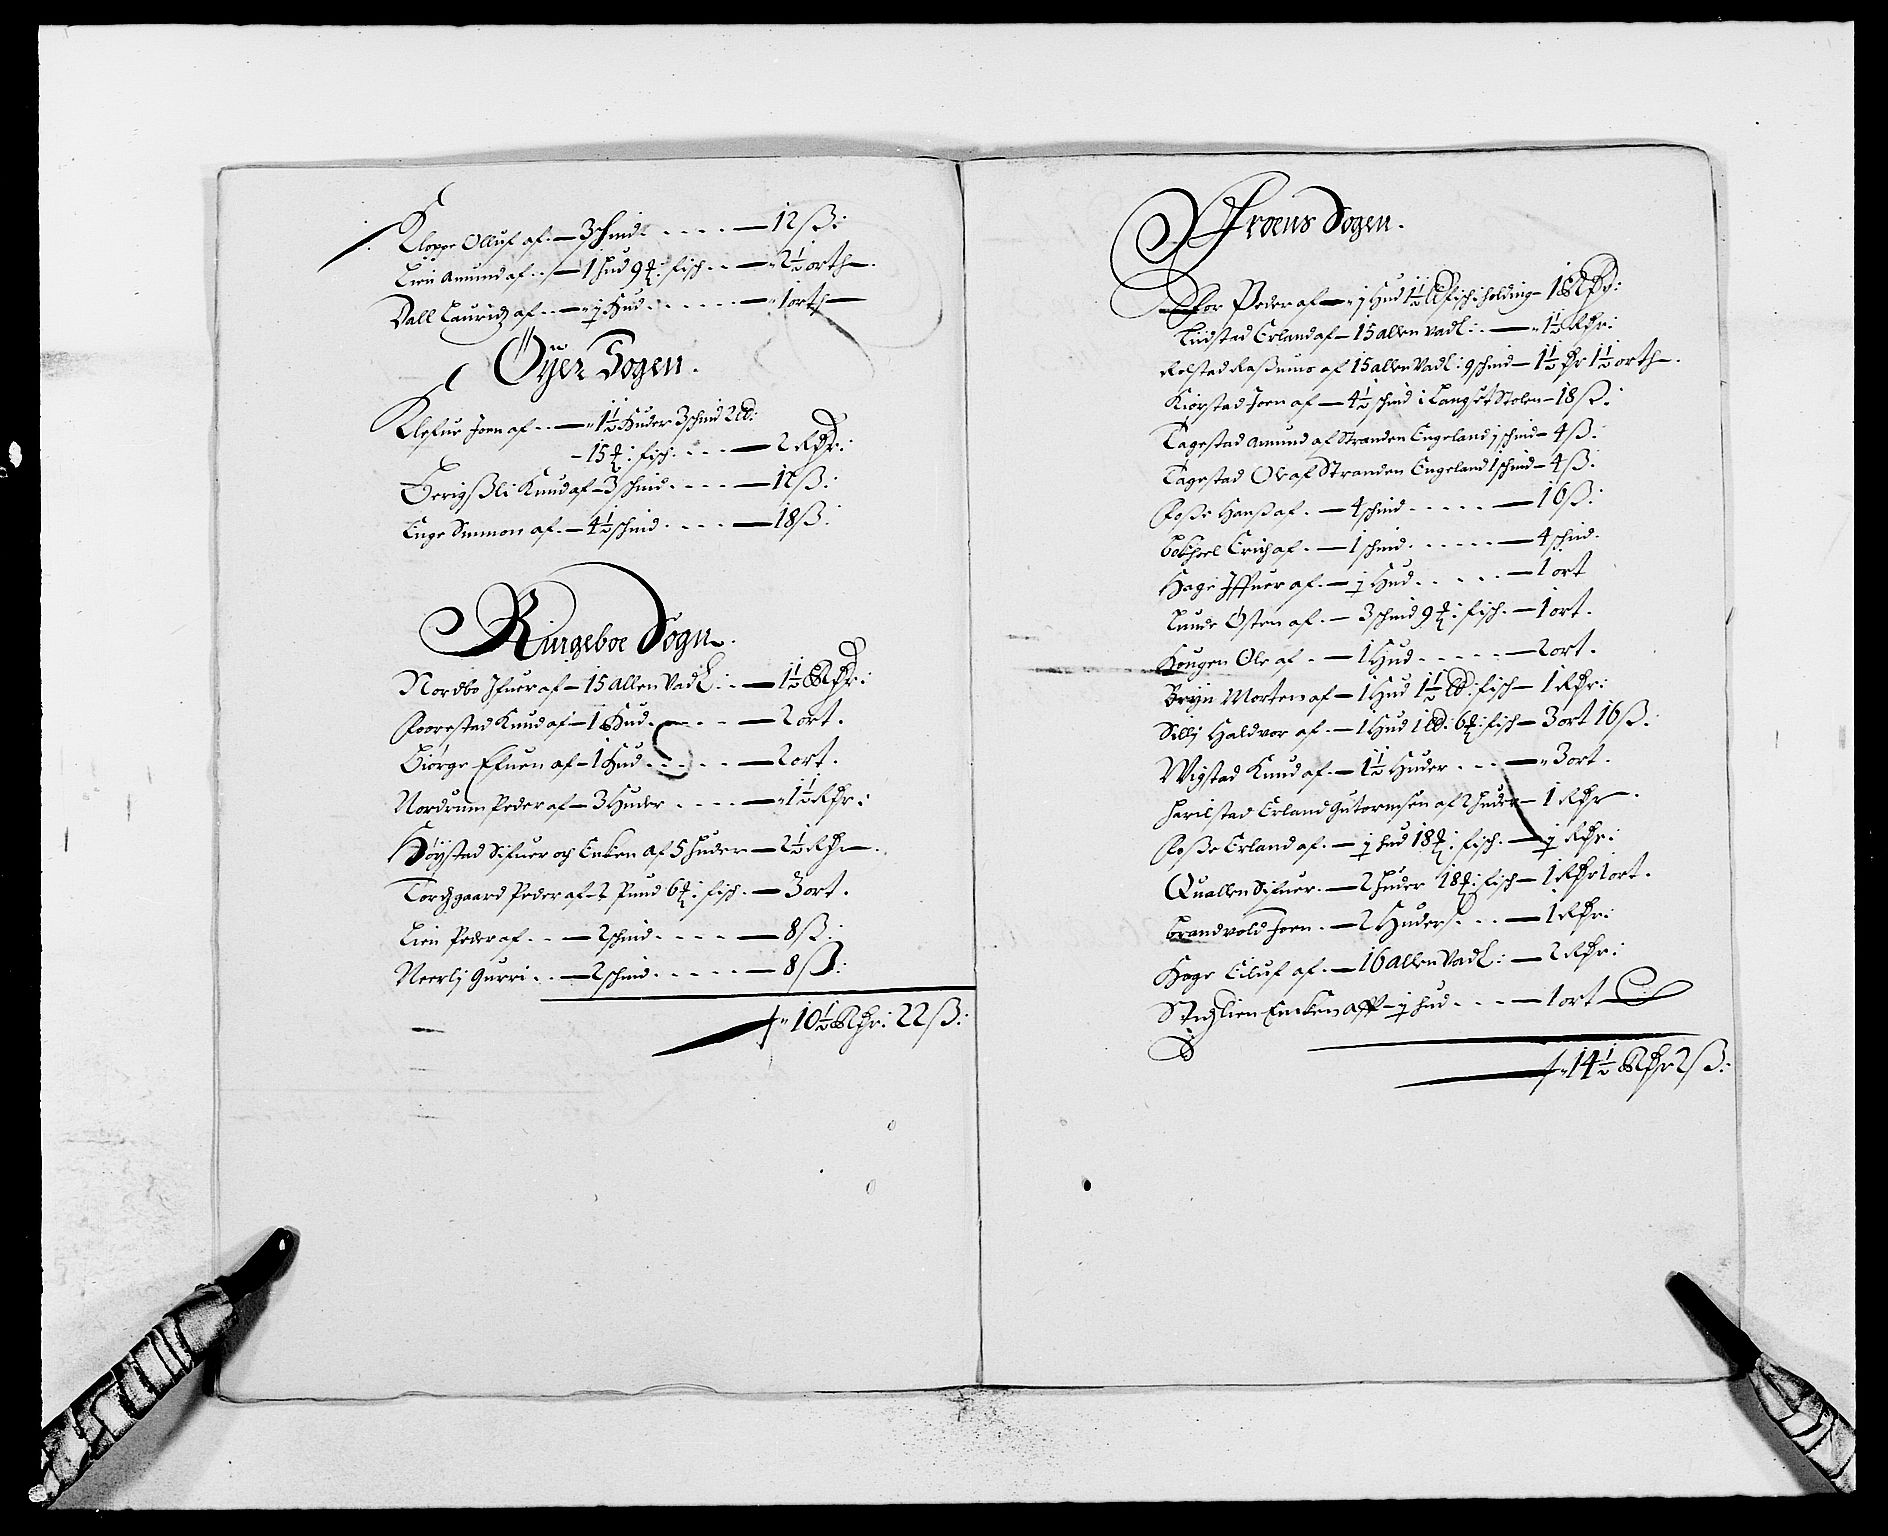 Kloppe Olluf af - 3 schind - 12 ß:
Lien Amund af - 1 hud 9 ℔: fisch - 2½ orth
Vall Lauridz af - ½ Hud - 1 orth
Öyer Sogen.
Klefue Joen af - 1½ Huder 3 schind 2 LB:
- 15 ℔: fisch - 2 Rdr:
Berigßli Knud af - 3 schind - 12 ß:
Enge Simmon af - 4½ schind - 18 ß:
Ringeboe Sogn.
Nordbo Ifuer af - 15 allen Vadl: - 1½ Rdr:
Roorestad Knud af - 1 Hud - 2 ort.
Biørge Efuen af - 1 Hud - 2 ort.
Nordrum Peder af - 3 Huder - 1½ Rdr:
Høystad Sifuer och Enken af 5 huder - 2½ Rdr.
Tordzgaard Peder af - 2 Pund 6 ℔: fisch. - 3 ort.
Lien Peder af - 2 schind - 8 ß:
Neerlj Gurri - 2 schind - 8 ß:
10½ Rdr: 22 ß:
Froens Sogen.
Peder af - ½ Hud 1½ LB fisch i holding - 1 Rdr:
Ludstad Erland af - 15 allen vadl: - 1½ Rdr:
Rolstad Raßmus af 15 allen Vadl: 9 schind - 1½ dr 1½ orth.
Kiørstad Joen af - 4½ schind i Langset Stolen - 18 ß:
Tagestad Amund af Stranden Engeland 1 schind - 4 ß:
Tagestad Ole af Stranden Engeland 1 schind - 4 ß:
Roße Hanß af - 4 schind - 16 ß:
Erich af - 1 schind - 4 schind.
Hage Iffuer af - ½ Hud - 1 ort
Lunde Østen af - 3 schind 9 ℔: fisch. - 1 ort.
Kongen Ole af - 1 Hud - 2 ort.
Bryn Morten af - 1 Hud 1½ LB: fisch - 1 Rdr:
Sillj Haldvor af - 1 Hud 1 LB: 6 ℔: fisch - 3 ort 16 ß:
Wigstad Knud af - 1½ Huder - 3 ort.
Harilstad Erland Gutormsen af 2 huder - 1 Rdr.
Roße Erland af - ½ hud 18 ℔: fisch. - ½ Rdr:
Quallen Sifuer - 2 huder 18 ℔: fisch - 1 Rdr 1 ort.
Brandvold Joen - 2 Huder - 1 Rdr:
Hage Eiluf af - 16 allen Vadl: - 2 Rdr:
Enken aff - ½ hud - 1 ort
14½ Rdr 2 ß: